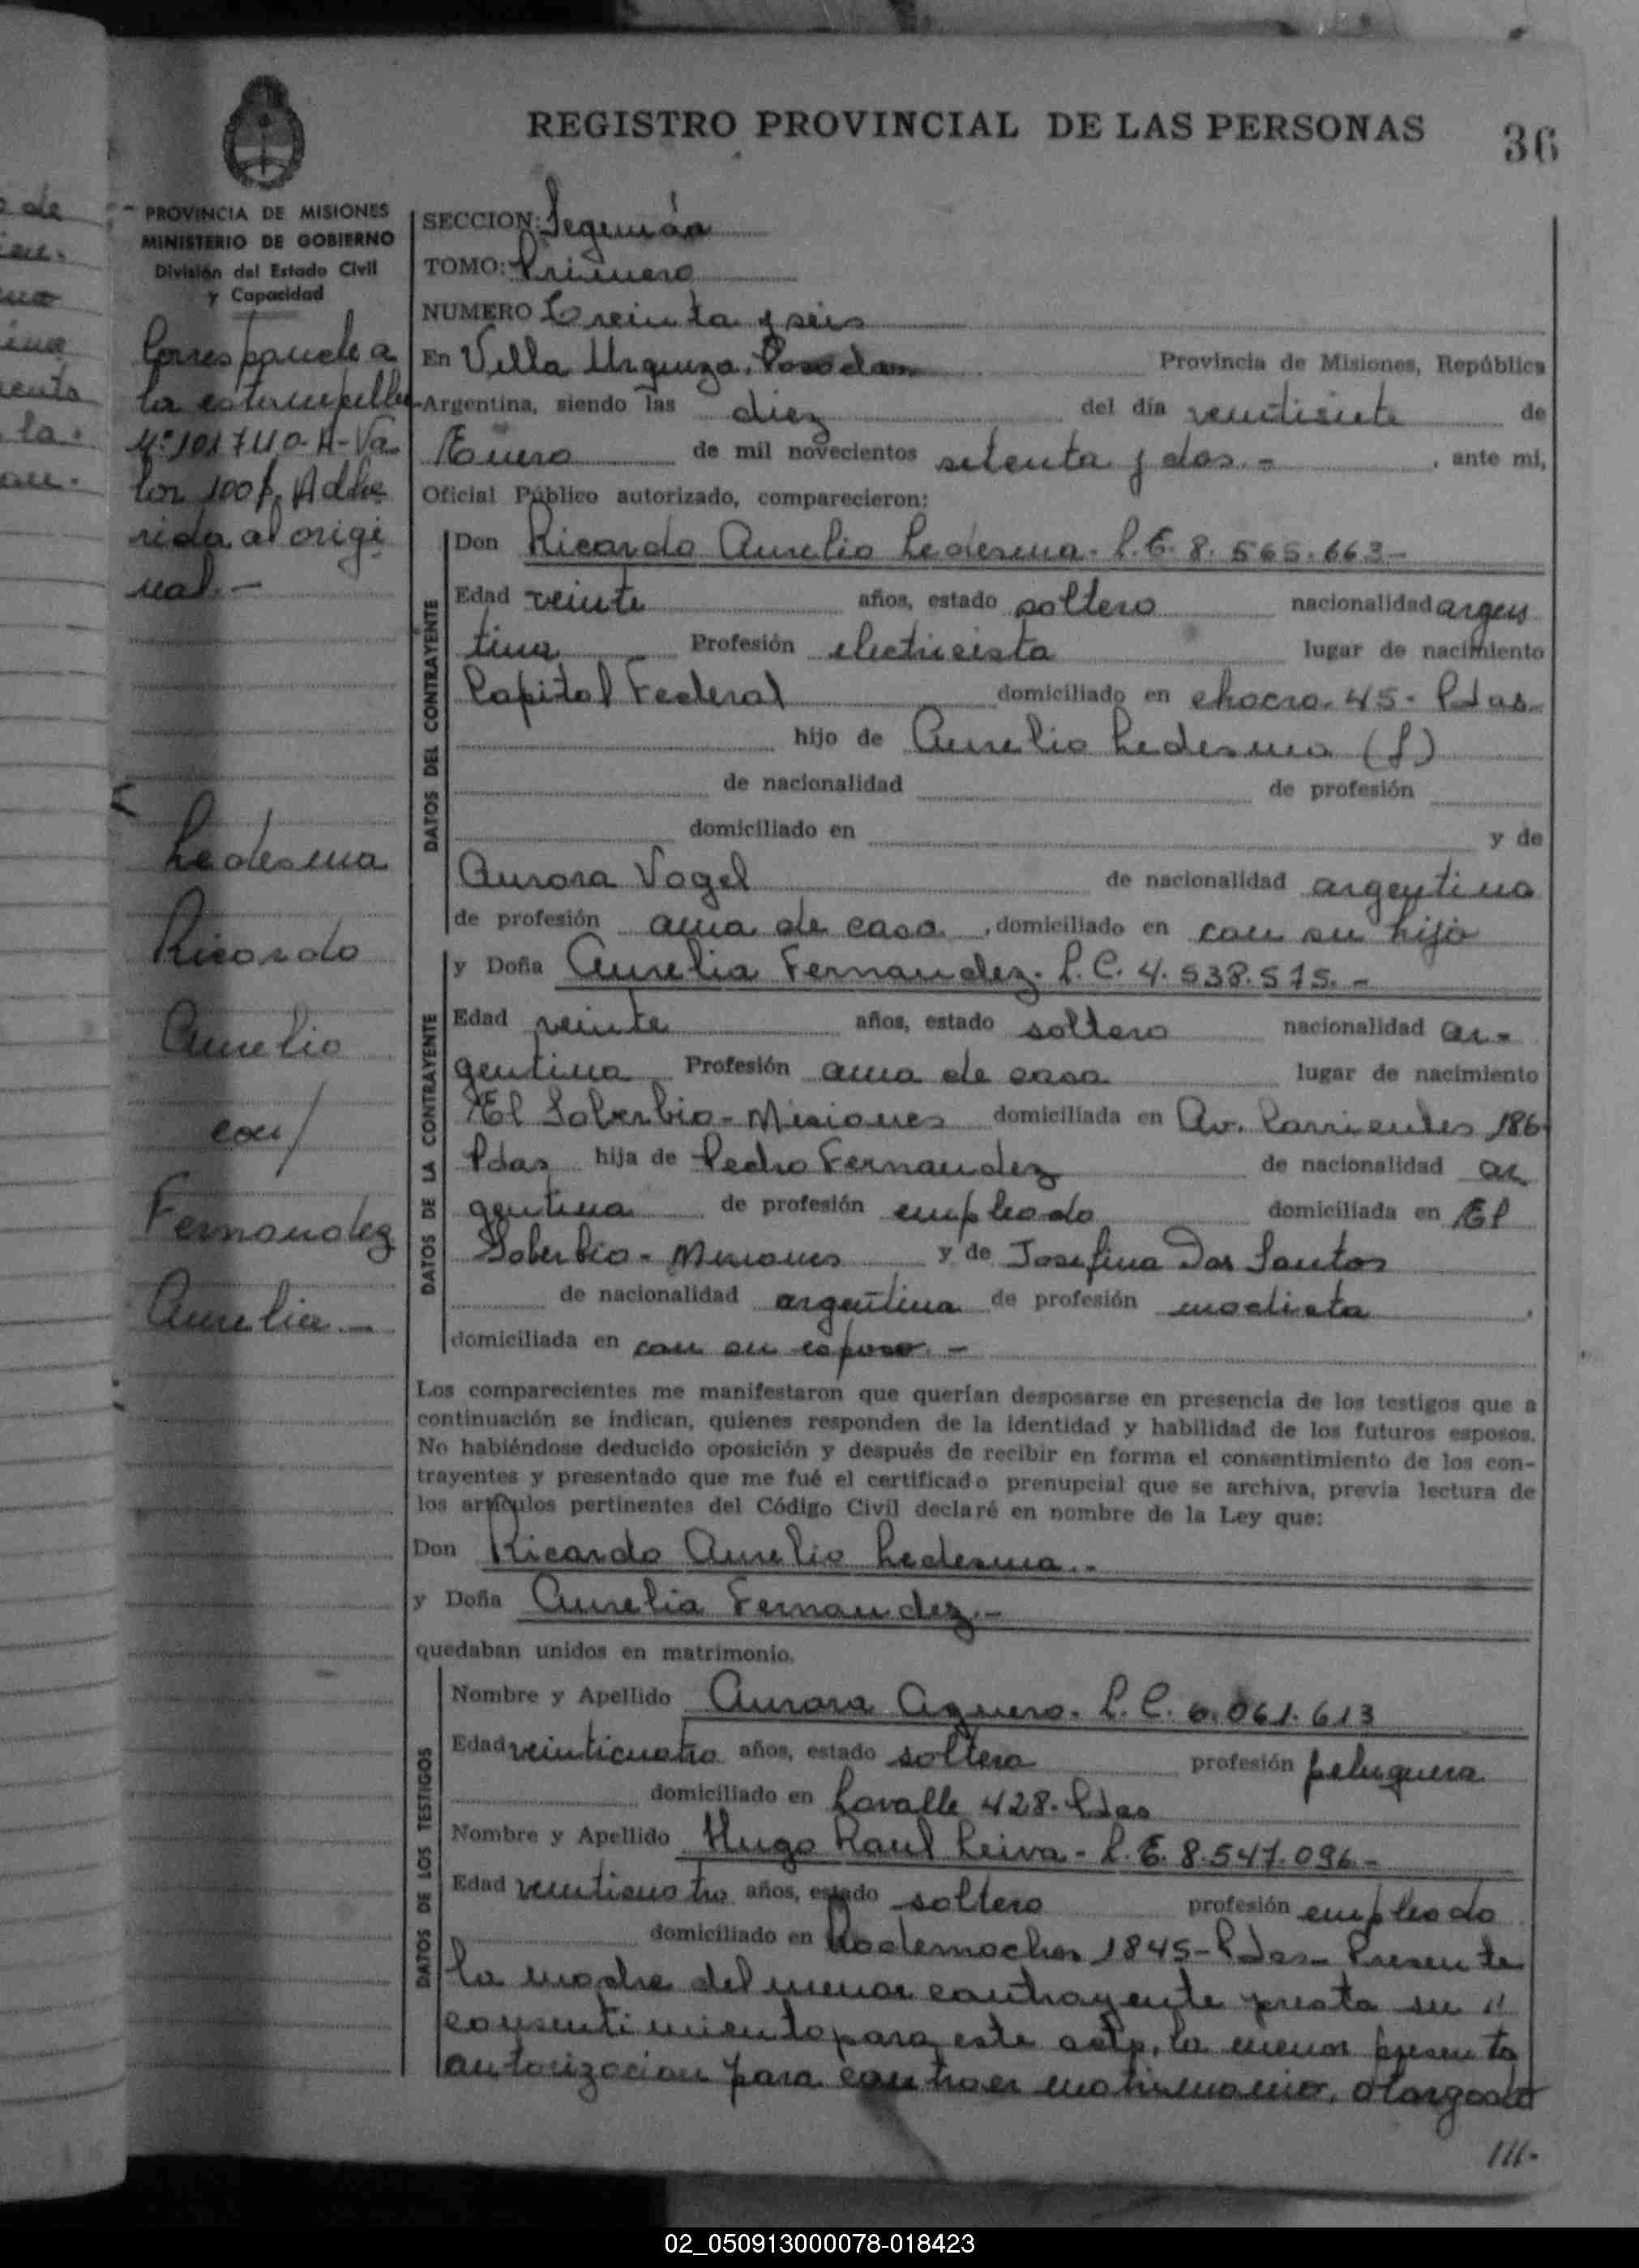 REGISTRO PROVINCIAL DE LAS PERSONAS
36
PROVINCIA DE MISIONES
MINISTERIO DE GOBIERNO
División del Estado Civil
y Capacidad
Corresponde a
la estampilla
Nº 101740-A-Va
lor 100 p. Adhe
rida al origi
nal.-
Ledesma
Ricardo
Aurelio
con/
Fernandez
Aurelia.-
SECCION: Segunda
TOMO: Primero
NUMERO Treinta y seis
En Villa Urquiza. Posadas Provincia de Misiones, República
Argentina, siendo las diez del día veintisiete de
Enero de mil novecientos setenta y dos.- , ante mi,
Oficial Público autorizado, comparecieron:
DATOS DEL CONTRAYENTE
Don Ricardo Aurelio Ledesma. L.E. 8.565.663-
Edad veinte años, estado soltero nacionalidad argen
tina Profesión electricista lugar de nacimiento
Capital Federal domiciliado en chacra. 45- Pdas.
hijo de Aurelio Ledesma (f)
de nacionalidad de profesión
domiciliado en y de
Aurora Vogel de nacionalidad argentina
de profesión ama de casa , domiciliado en con su hijo
DATOS DE LA CONTRAYENTE
y Doña Aurelia Fernandez. L.C. 4.538.575.-
Edad veinte años, estado soltera nacionalidad ar-
gentina Profesión ama de casa lugar de nacimiento
El Soberbio-Misiones domiciliada en Av. Corrientes 186
Pdas hija de Pedro Fernandez de nacionalidad ar
gentina de profesión empleado domiciliada en El
Soberbio-Misiones y de Josefina Dos Santos
de nacionalidad argentina de profesión modista ,
domiciliada en con su esposo.-
Los comparecientes me manifestaron que querían desposarse en presencia de los testigos que a
continuación se indican, quienes responden de la identidad y habilidad de los futuros esposos.
No habiéndose deducido oposición y después de recibir en forma el consentimiento de los con-
trayentes y presentado que me fué el certificado prenupcial que se archiva, previa lectura de
los artículos pertinentes del Código Civil declaré en nombre de la Ley que:
Don Ricardo Aurelio Ledesma.-
y Doña Aurelia Fernandez.-
quedaban unidos en matrimonio.
DATOS DE LOS TESTIGOS
Nombre y Apellido Aurora Aguero. L.C. 6.061.613
Edad veinticuatro años, estado soltera profesión peluquera
domiciliado en Lavalle 428. Pdas
Nombre y Apellido Hugo Raul Leiva- L.E. 8.547.096-
Edad veinticuatro años, estado soltero profesión empleado
domiciliado en 1845-Pdas- Presente
la madre del menor contrayente presta su
consentimiento para este acto, la menor presenta
autorizacion para contraer matrimonio, otorgada
///-
02_050913000078-018423